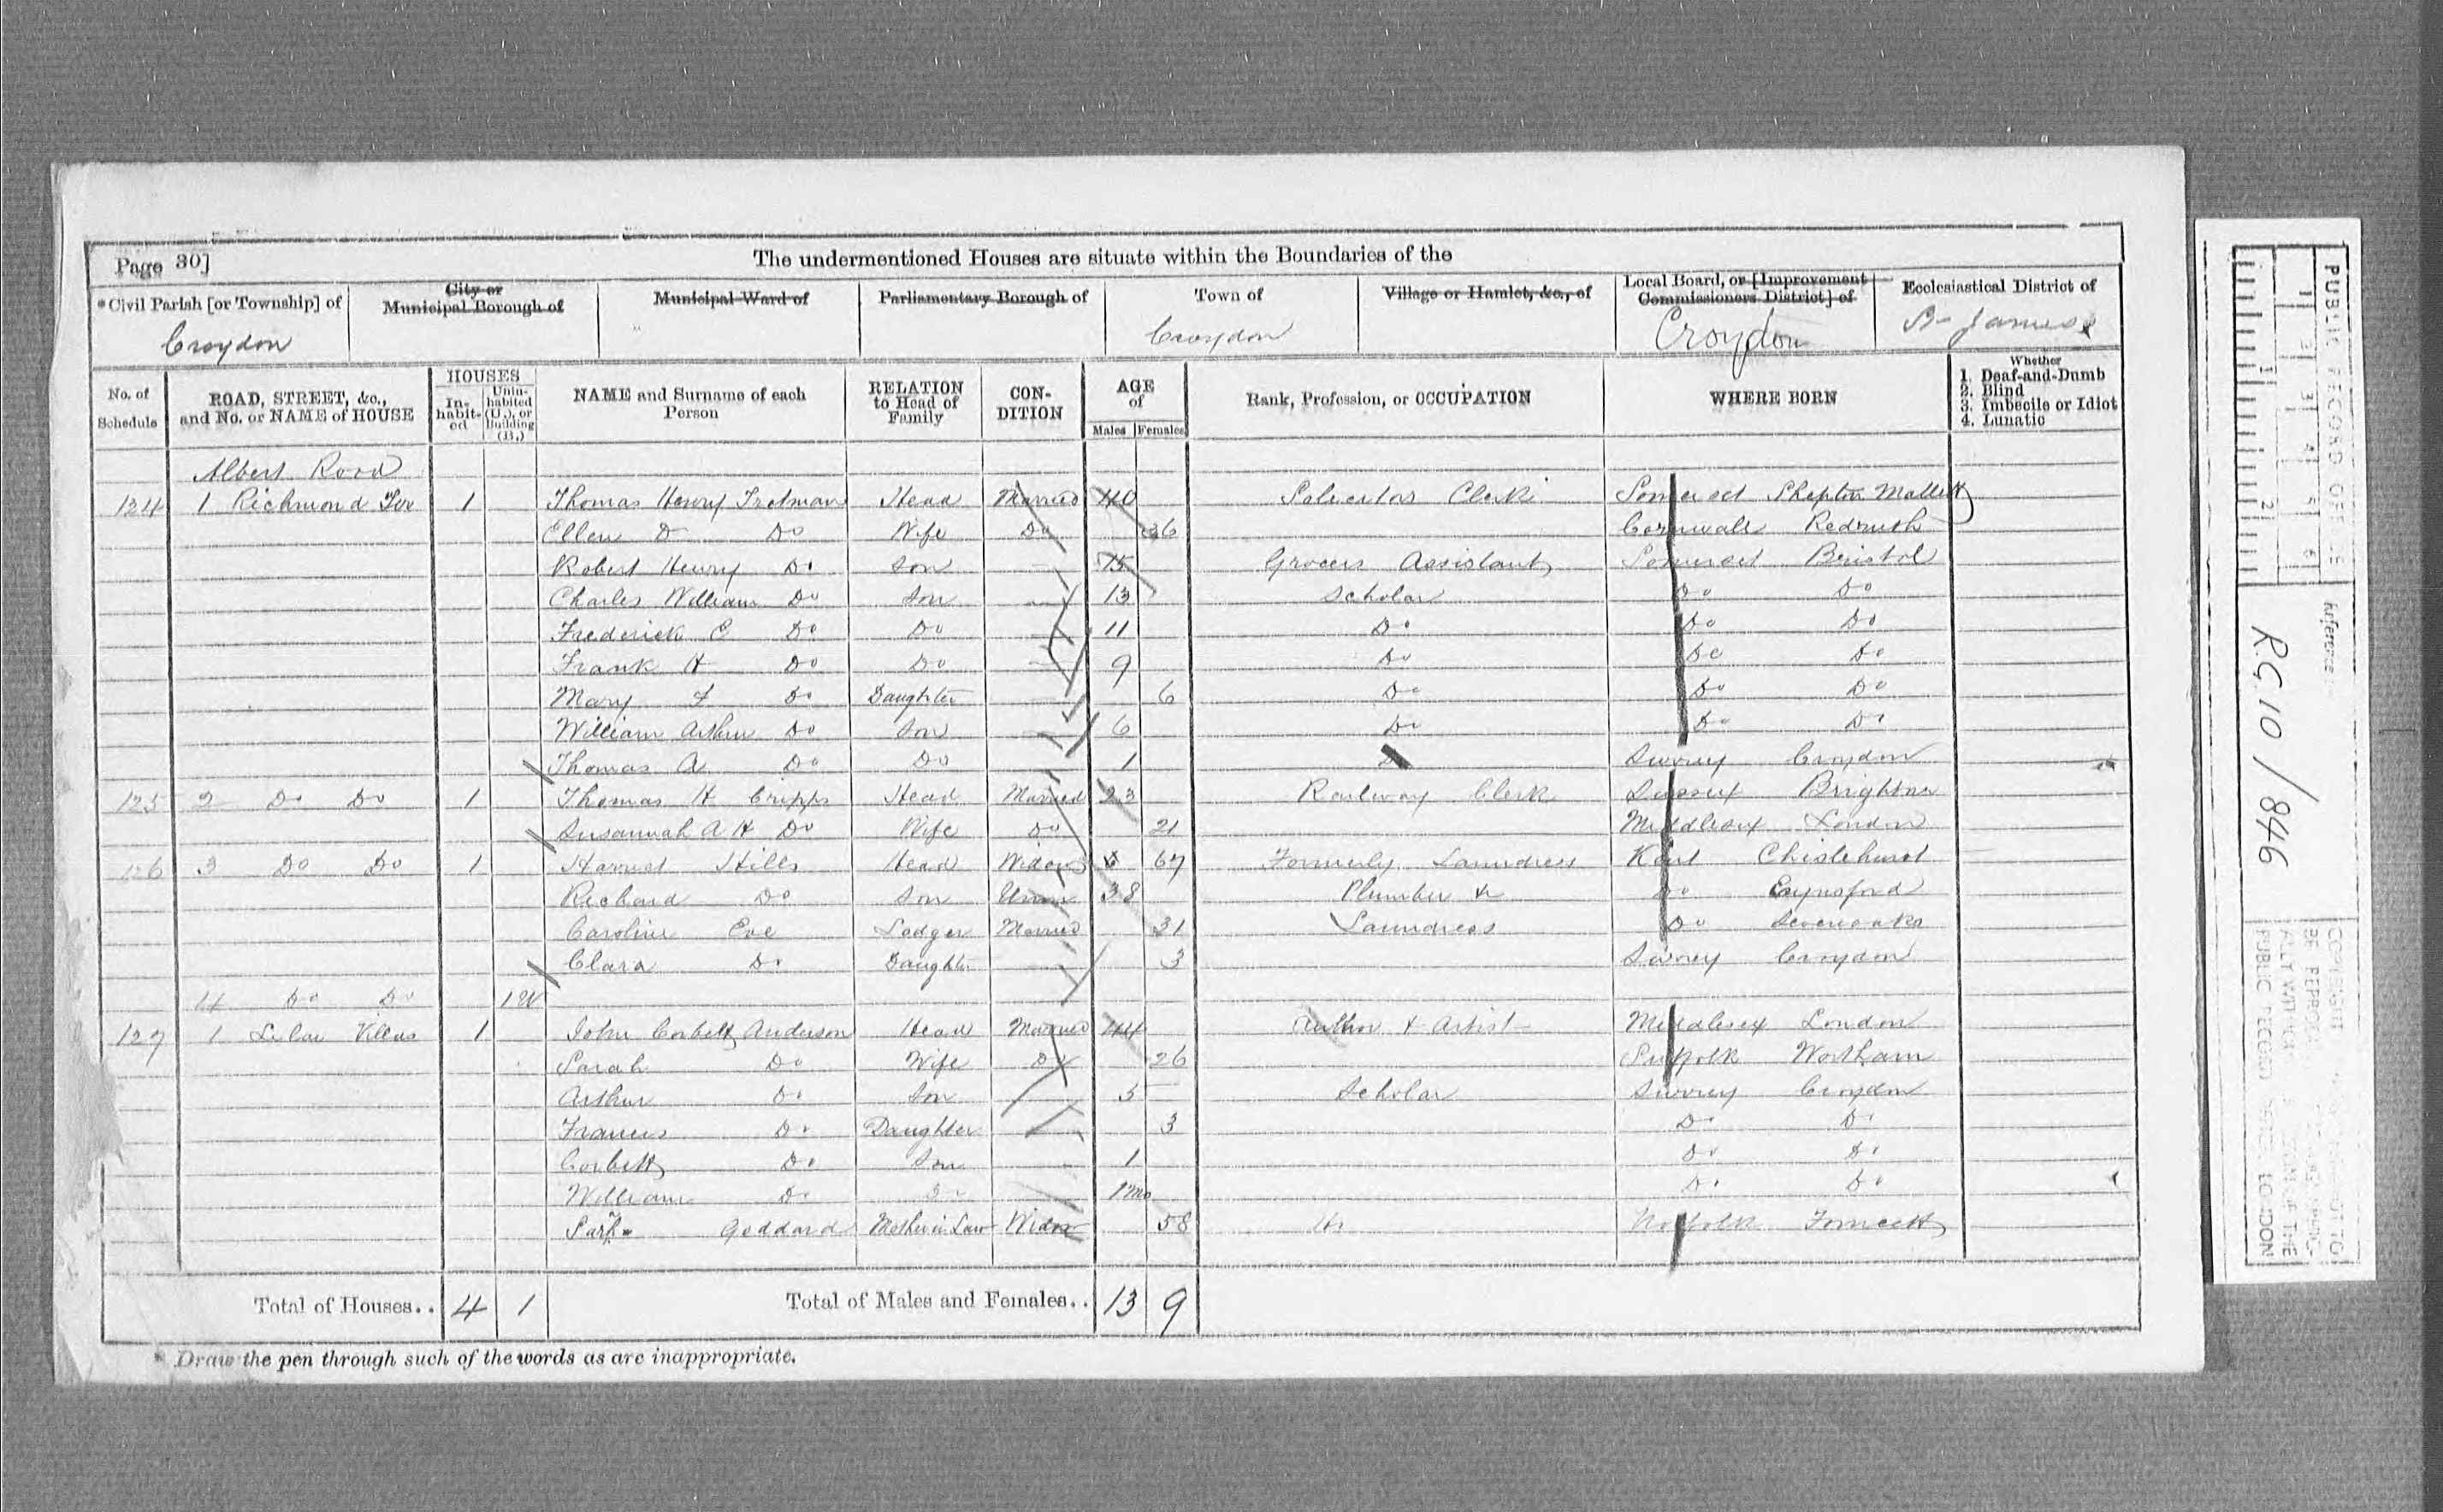 Page 30]
The undermentioned Houses are situate within the Boundaries of the
*Civil Parish [or Township] of
Croydon
City or Municipal Borough of
Municipal Ward of
Parliamentary Borough of
Town of
Croydon
Village or Hamlet, &c., of
Local Board, or [Improvement Commissioners District] of
Croydon
Ecclesiastical District of
St James
No. of Schedule
ROAD, STREET, &c., and No. or NAME of HOUSE
HOUSES
In-habit-ed
Unin-habited (U.), or Building (B.)
NAME and Surname of each Person
RELATION to Head of Family
CON-DITION
AGE of
Males Females
Rank, Profession, or OCCUPATION
WHERE BORN
Whether
1. Deaf-and-Dumb
2. Blind
3. Imbecile or Idiot
4. Lunatic
Albert Road
124 1 Richmond Ter 1 Thomas Henry Tratman Head Married 40 Solicitors Clerk Somerset Shepton Mallett
Ellen D Do Wife Do 36 Cornwall Redruth
Robert Henry Do Son 15 Grocers Assistant Somerset Bristol
Charles William Do Son 13 Scholar Do Do
Frederick C Do Do 11 Do Do Do
Frank H Do Do 9 Do Do Do
Mary Do Daughter 6 Do Do Do
William Arthur Do Son 6 Do Do Do
Thomas A Do Do 1 Surrey Croydon
125 2 Do Do 1 Thomas H Cripps Head Married 23 Railway Clerk Sussex Brighton
Susannah A H Do Wife Do 21 Middlesex London
126 3 Do Do 1 Harriet Hills Head Widow 67 Formerly Laundress Kent Chislehurst
Richard Do Son Unm 38 Plumber Do Eynsford
Caroline Eve Lodger Married 31 Laundress Do Sevenoaks
Clara Do Daughter 3 Surrey Croydon
4 Do Do 1U
127 1 Villas 1 John Corbett Anderson Head Married 44 Author & Artist Middlesex London
Sarah Do Wife Do 26 Suffolk Wortham
Arthur Do Son 5 Scholar Surrey Croydon
Frances Do Daughter 3 Do Do
Corbett Do Son 1 Do Do
William Do Do 1mo Do Do
Sarh Goddard Mother in Law Widow 58 Norfolk Forncett
Total of Houses.. 4 1
Total of Males and Females.. 13 9
* Draw the pen through such of the words as are inappropriate.
PUBLIC RECORD OFFICE
1 2 3 4 5 6
1 2
Reference
R.G. 10/846